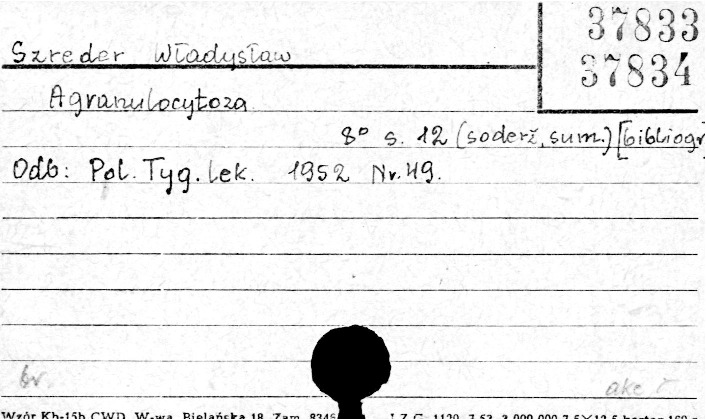 37833
37834
Szreder Władysław
Agranulocytoza
8° s. 12 (soderž, sum.) [bibliogr
Odb: Pol. Tyg. lek. 1952 Nr. 49.
br.
akc
Wzór Kh-15b CWD, W-wa, Bielańska 18. Zam. 8346 J.Z.G. 1120 7.53 3.000.000 7,5×12,5 karton 160 g